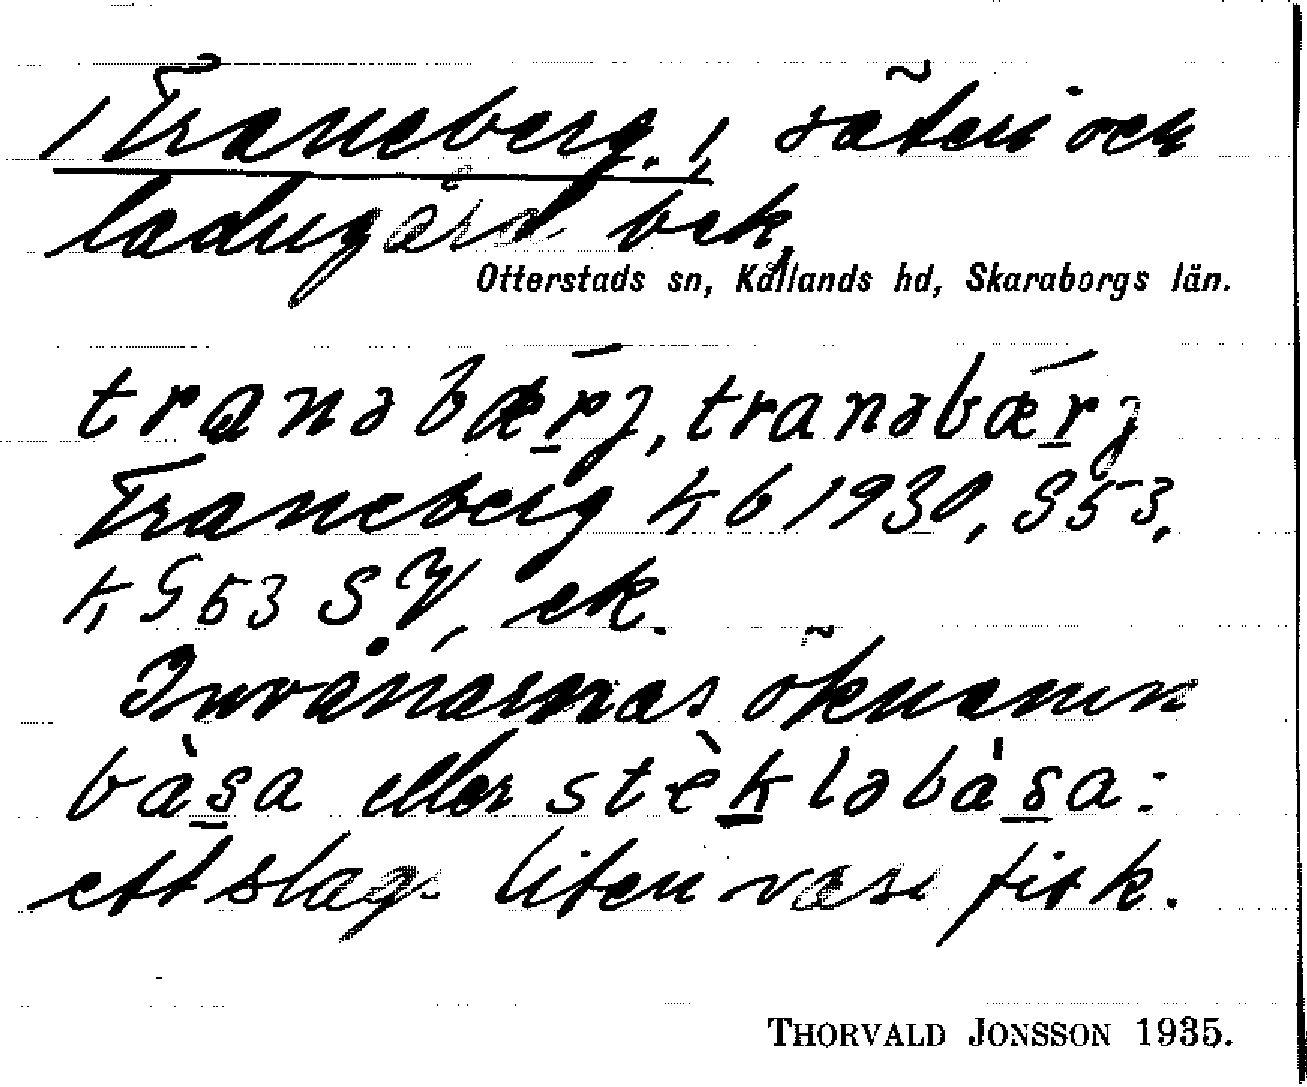 /Traneberg./, säteri och
ladugård bek.
Otterstads sn, Kållands hd, Skaraborgs län.
tranəbærj, tranəbærj
Traneberg Kb 1930, S53,
KG 53 SV, ek.
Invånarnas öknamn
bàsa eller stèkləbàsa:
ett slag liten vass fisk.
THORVALD JONSSON 1935.